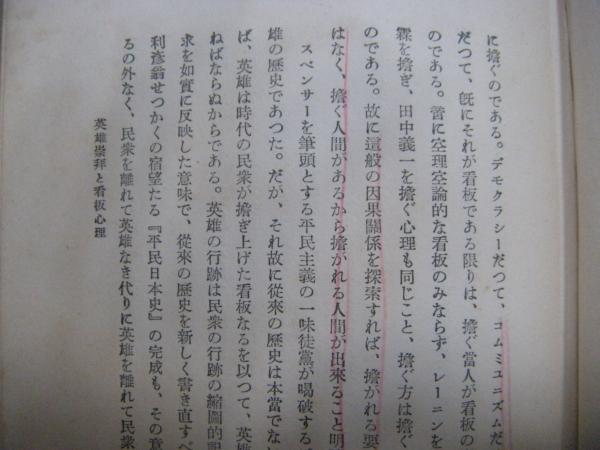 に擔ぐのである。デモクラシーだつて、コムミユニズムだ
だつて、既にそれが看板である限りは、擔ぐ當人が看板の
のである。啻に空理空論的な看板のみならず、レーニンを
霖を擔ぎ、田中義一を擔ぐ心理も同じこと、擔ぐ方は擔ぐ
のである。故に這般の因果關係を探索すれば、擔がれる要
はなく、擔ぐ人間があるから擔がれる人間が出來ること明
スペンサーを筆頭とする平民主義の一味徒黨が喝破する
雄の歴史であつた。だが、それ故に從來の歴史は本當でな
ば、英雄は時代の民衆が擔ぎ上げた看板なるを以つて、英
ねばならぬからである。英雄の行跡は民衆の行跡の縮圖的記
求を如實に反映した意味で、從來の歴史を新しく書き直すべ
利彦翁せつかくの宿望たる『平民日本史』の完成も、その意
るの外なく、民衆を離れて英雄なき代りに英雄を離れて民衆
英雄崇拜と看板心理